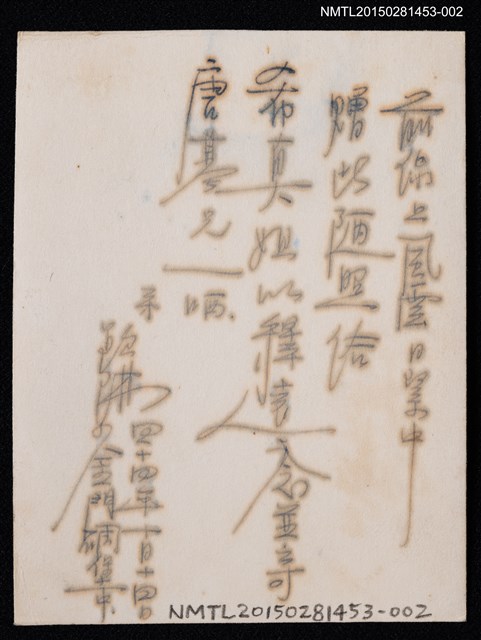 NMTL20150281453-002
前線上風雲日緊中
贈此陋照給
希真姐以釋遠念並寄
唐基兄一哂、
弟
四十四年一月十四日
金門碉堡中
NMTL20150281453-002